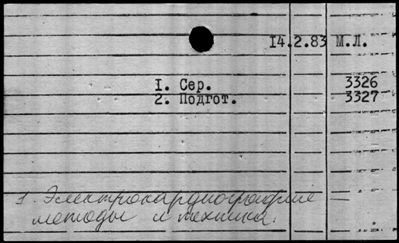 14.2.83 М.Л.
1. Сер. 3326
2. Подгот. 3327
1. Электрокардиография —
методы и техника.